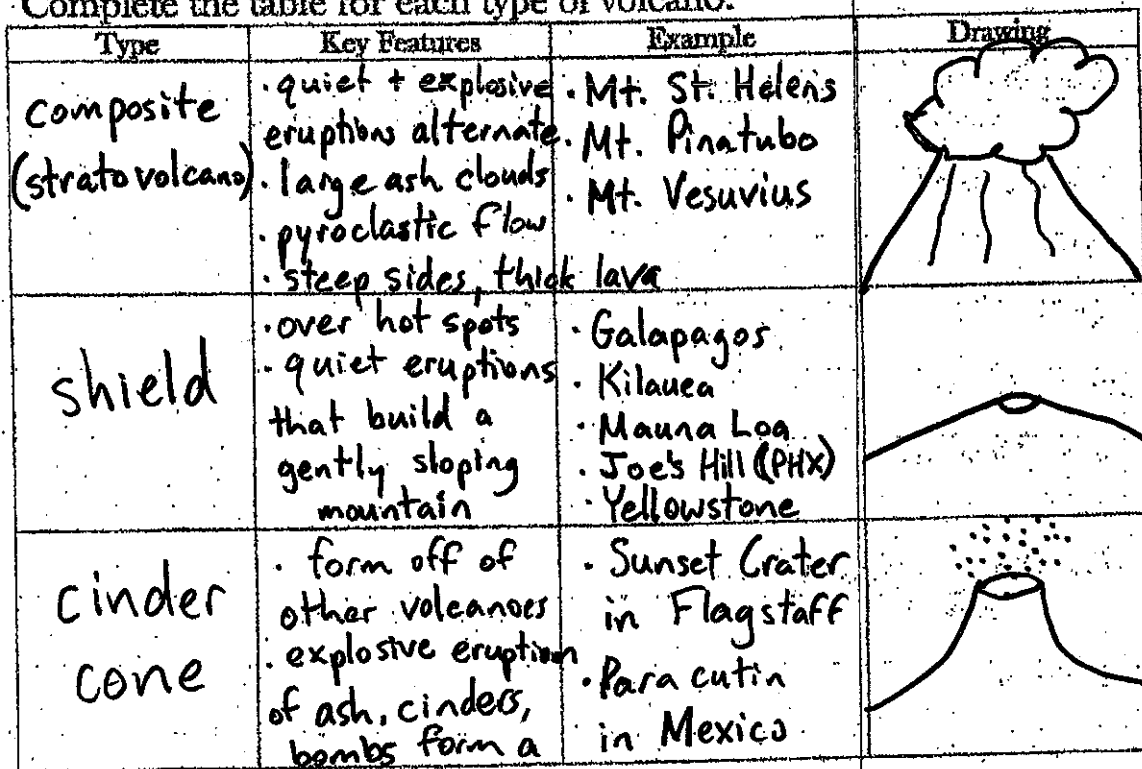 Complete the table for each type of volcano.
Type Key Features Example Drawing
composite
(stratovolcano)
· quiet + explosive
eruptions alternate
· large ash clouds
· pyroclastic flow
· steep sides, thick lava
· Mt. St. Helens
· Mt. Pinatubo
· Mt. Vesuvius
shield
· over hot spots
· quiet eruptions
that build a
gently sloping
mountain
· Galapagos
· Kilauea
· Mauna Loa
· Joe's Hill (PHX)
· Yellowstone
cinder
cone
· form off of
other volcanoes
· explosive eruption
of ash, cinders,
bombs form a
· Sunset Crater
in Flagstaff
· Paracutin
in Mexico